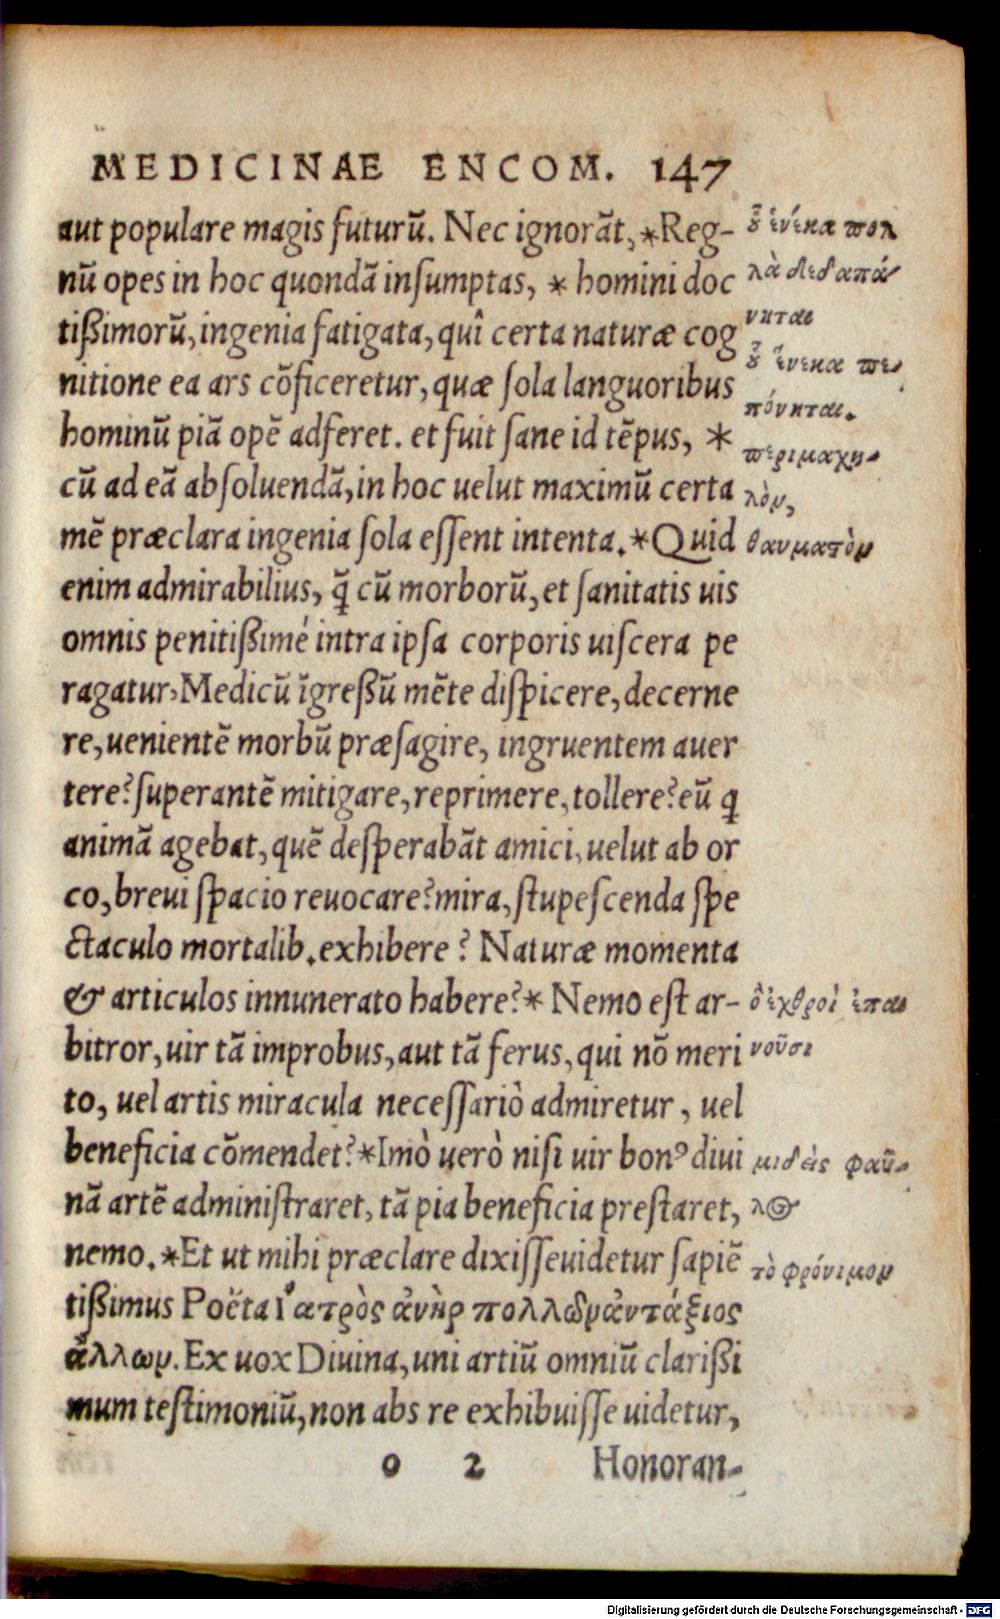 MEDICINAE ENCOM. 147
aut populare magis futurū. Nec ignorāt, *Reg-
nū opes in hoc quondā insumptas, * homini doc
tißimorū, ingenia fatigata, quî certa naturæ cog
nitione ea ars cōficeretur, quæ sola languoribus
hominū piā opē adferet. et fuit sane id tēpus, *
cū ad eā absoluendā, in hoc uelut maximū certa
mē præclara ingenia sola essent intenta. *Quid
enim admirabilius, q̄ cū morborū, et sanitatis uis
omnis penitißimé intra ipsa corporis uiscera pe
ragatur, Medicū īgreßū mēte dispicere, decerne
re, uenientē morbū præsagire, ingruentem auer
tere? superantē mitigare, reprimere, tollere? eū q
animā agebat, quē desperabāt amici, uelut ab or
co, breui spacio reuocare? mira, stupescenda spe
ctaculo mortalib. exhibere ? Naturæ momenta
& articulos innunerato habere? * Nemo est ar-
bitror, uir tā improbus, aut tā ferus, qui nō meri
to, uel artis miracula necessariò admiretur, uel
beneficia cōmendet? *Imò uerò nisi uir bonꝰ diui
nā artē administraret, tā pia beneficia prestaret,
nemo. *Et ut mihi præclare dixisse uidetur sapiē
tißimus Poëta Ἰατρὸς ἀνὴρ πολλῶν ἀντάξιος
ἄλλων. Ex uox Diuina, uni artiū omniū clarißi
mum testimoniū, non abs re exhibuisse uidetur,
o 2 Honoran-
οὗ ἕνεκα πολ
λὰ δεδαπά
νηται
οὗ ἕνεκα πε
πόνηται.
περιμαχη-
λὸν,
θαυματὸν
ὃ ἐχθροὶ ἐπαι
νοῦσι
μιδεὶς φαῦ-
λος
τὸ φρόνιμον
Digitalisierung gefördert durch die Deutsche Forschungsgemeinschaft - DFG